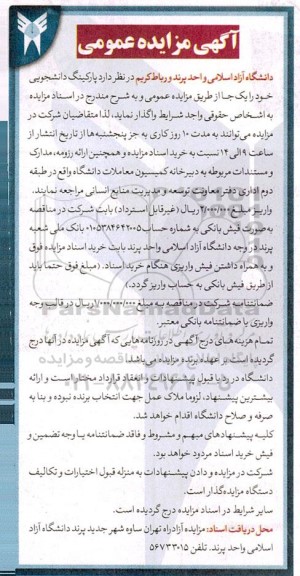 آگهی مزایده عمومی
دانشگاه آزاد اسلامی واحد پرند و رباط کریم در نظر دارد پارکینگ دانشجویی
خود را یک جا از طریق مزایده عمومی و به شرح مندرج در اسناد مزایده
به اشخاص حقوقی واجد شرایط واگذار نماید، لذا متقاضیان شرکت در
مزایده می‌توانند به مدت ۱۰ روز کاری به جز پنجشنبه‌ها از تاریخ انتشار از
ساعت ۹ الی ۱۴ نسبت به خرید اسناد مزایده و همچنین ارائه رزومه، مدارک
و مستندات مربوطه به دبیرخانه کمیسیون معاملات دانشگاه واقع در طبقه
دوم اداری دفتر معاونت توسعه و مدیریت منابع انسانی مراجعه نمایند.
واریز مبلغ ۲/۰۰۰/۰۰۰ ریال (غیرقابل استرداد) بابت شرکت در مناقصه
به‌صورت فیش بانکی به شماره حساب ۰۱۰۵۳۸۴۶۴۲۰۰۵ بانک ملی شعبه
پرند در وجه دانشگاه آزاد اسلامی واحد پرند بابت خرید اسناد مزایده فوق
و به همراه داشتن فیش واریزی هنگام خرید اسناد. (مبلغ فوق حتما باید
از طریق فیش بانکی به حساب واریز گردد).
ضمانتنامه شرکت در مناقصه به مبلغ ریال در قالب وجه
واریزی یا ضمانتنامه بانکی معتبر.
تمام هزینه های درج آگهی در روزنامه هایی که آگهی مزایده در آنها درج
گردیده است بر عهده برنده مزایده می‌باشد.
دانشگاه در رد یا قبول پیشنهادات و انعقاد قرارداد مختار است و ارائه
بیشترین پیشنهاد، لزوما ملاک عمل جهت انتخاب برنده نبوده و بنا به
صرفه و صلاح دانشگاه اقدام خواهد شد.
کلیه پیشنهادهای مبهم و مشروط و فاقد ضمانتنامه یا وجه تضمین و
فیش خرید اسناد مردود خواهد بود.
شرکت در مزایده و دادن پیشنهادات به منزله قبول اختیارات و تکالیف
دستگاه مزایده‌گذار است.
سایر شرایط در اسناد مزایده درج گردیده است.
محل دریافت اسناد: مزایده آزادراه تهران ساوه شهر جدید پرند دانشگاه آزاد
اسلامی واحد پرند. تلفن ۵۶۷۳۳۰۱۵